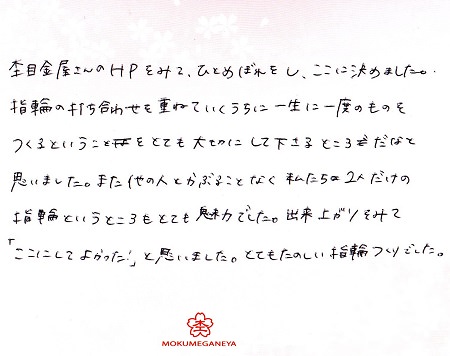 杢目金屋さんのHPをみて、ひとめぼれをし、ここに決めました。
指輪の打ち合わせを重ねていくうちに一生に一度のものを
つくるということをとても大切にして下さるところだなと
思いました。また他の人とかぶることなく私たちの2人だけの
指輪というところもとても魅力でした。出来上がりをみて
「ここにしてよかった!」と思いました。とてもたのしい指輪つくりでした。
杢
MOKUMEGANEYA